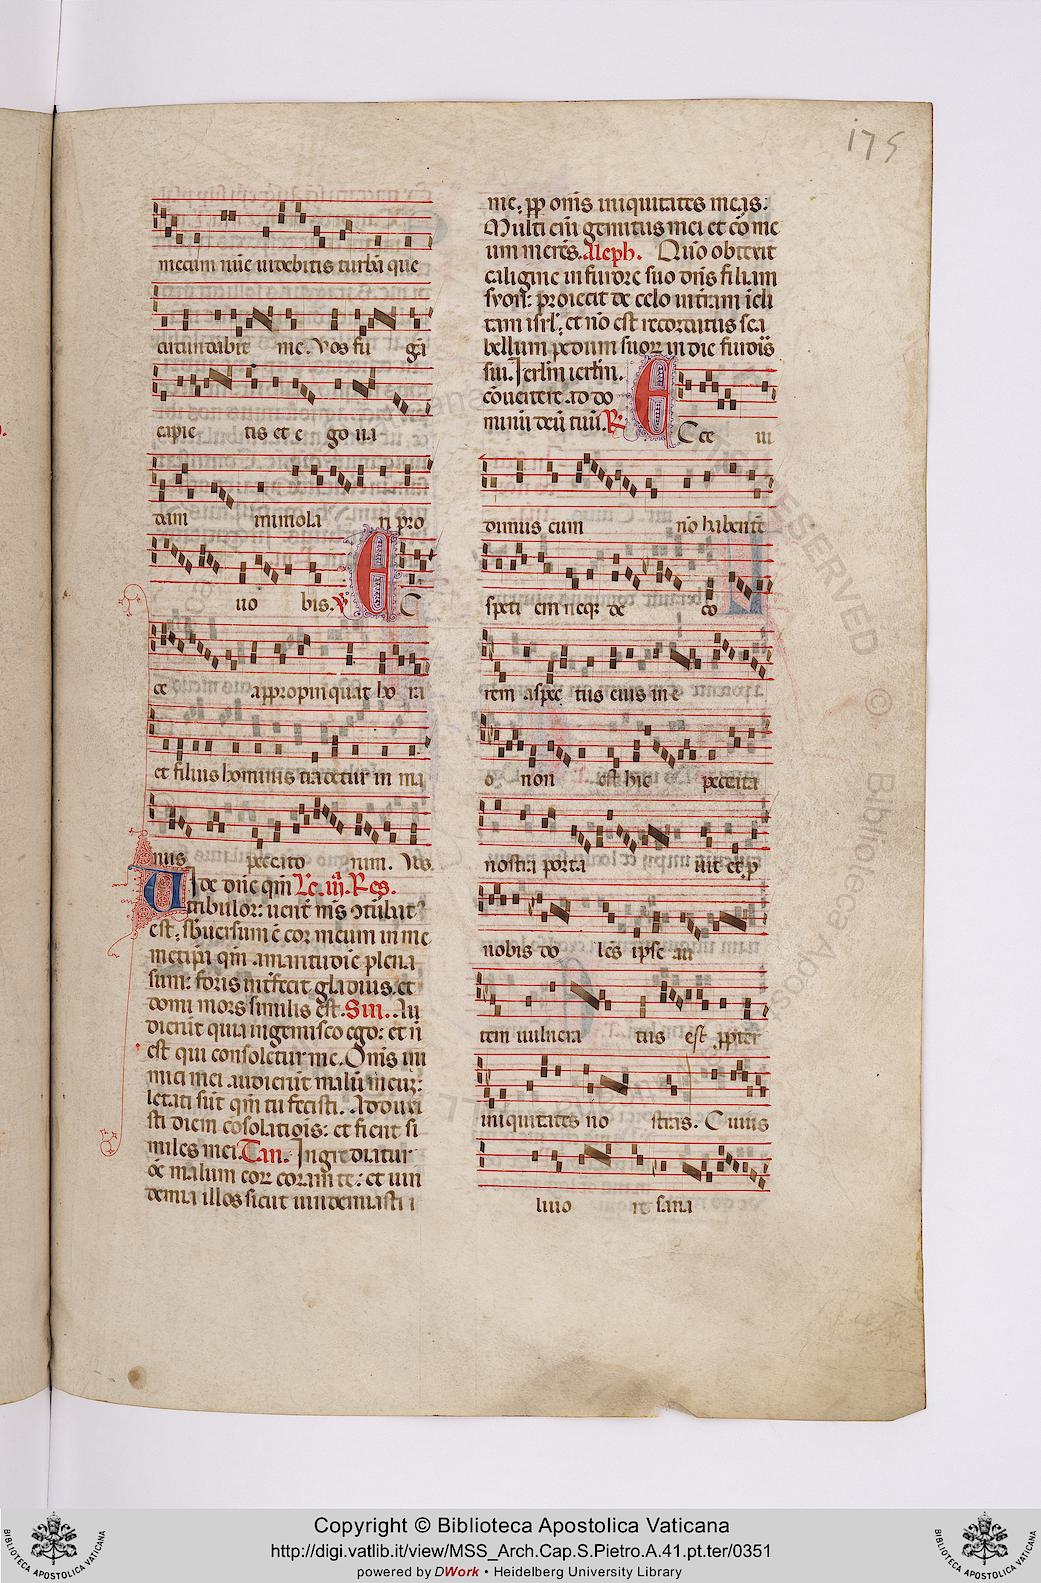 175
mecum nũc uidebitis turbã que
circundabit me. Vos fu gã
capie tis et e go ua
dam immola ri pro
uo bis. ℣ E
ce appropinquat ho ra
et filius hominis tradetur in ma
nus pecca to rum. Vos.
Uide dñe qm̃ Lc. iij. Res.
tribulor: uent̃ ms̃ ↄturbat᷒
est, sb̃uersum ẽ cor meum in me
metip̃a qm̃ amaritudĩe plena
sum: foris int̃fecit gladius, et
domi mors similis est. Sin. Au
dierũt quia ingemisco ego: et ñ
est qui consoletur me. Om̃s ini
mici mei audierũt malũ meuʒ:
letati sũt qm̃ tu fecisti. Adduxi
sti diem cõsolatiõis: et fient si
miles mei. Tau. Ingrediatur
oẽ malum eoꝝ coram te: et uin
demia illos sicut uindemiasti
me, ꝓp om̃s iniquitates meas:
Multi em̃ gemitus mei et cõ me
um merẽs. Aleph. Quõ obtexit
caligine in furore suo dñs filiam
syon: proiecit de celo in t̃ram ĩcli
tam isrl̃, et nõ est recordatus sca
bellum pedum suoꝝ in die furoris
sui. Ierl̃m ierl̃m.
cõuertere ad do
minũ deũ tuũ. ℟ E
Cce ui
dimus eum nõ habentẽ
speti em neqʒ de co
rem aspec tus eius in e
o non est hic peccata
nostra porta uit et ꝓ
nobis do let ipse au
tem uulnera tus est ꝓpter
iniquitates no stras. Cuius
liuo re sana
RESERVED © Biblioteca Aposto
Copyright © Biblioteca Apostolica Vaticana
http://digi.vatlib.it/view/MSS_Arch.Cap.S.Pietro.A.41.pt.ter/0351
powered by DWork • Heidelberg University Library
BIBLIOTECA APOSTOLICA VATICANA
BIBLIOTECA APOSTOLICA VATICANA